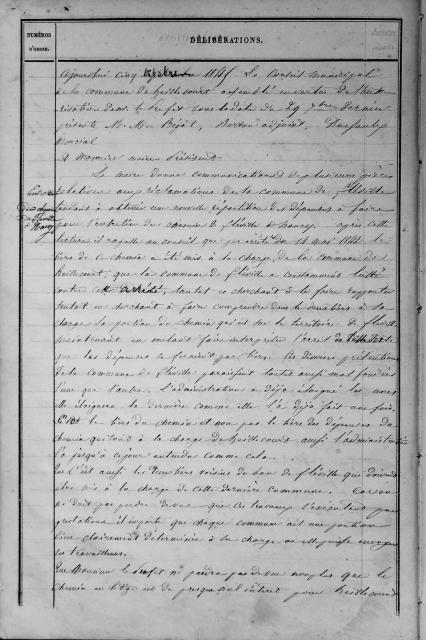 NUMÉROS
D'ORDRE.
DÉLIBÉRATIONS.
Aujourd'hui cinq octobre 1845 Le Conseil municipal
de la commune de heillecourt assemblé en vertu de l'auto
risation de M. le Préfet sous la date du 29 7bre dernier
présents M.M. Bertin adjoint,
Monsieur maire Président
Le maire donne communication de plusieurs pièces
relatives aux réclamations de la commune de fléville
tendant à obtenir une nouvelle répartition des dépenses à faire
pour l'entretien du chemin de fléville à Nancy. après cette
lecture il rappelle au conseil que par arrêté du 14 mai 1842 le
tiers de ce chemin a été mis à la charge de la commune de
heillecourt, que la commune de fléville a constamment lutté
contre cet arrêté, tantôt en cherchant à le faire rapporter
tantôt en cherchant à faire comprendre dans le tiers à sa
charge la portion de chemin qui est sur le territoire de fléville
maintenant en voulant faire interpréter l'arrêté
que les dépenses se feraient par tiers. Les diverses prétentions
de la commune de fléville paraissent toutes aussi mal fondées
l'une que l'autre. l'administration a déjà éloigné les unes
elle éloignera la dernière comme elle l'a déjà fait une fois.
le tiers du chemin et non pas le tiers des dépenses du
chemin qui est à la charge de heillecourt, aussi l'administration
l'a jusqu'à ce jour entendu comme cela.
Que c'est aussi les deux tiers voisins du ban de fléville qui doivent
être mis à la charge de cette dernière commune. Car on
ne doit pas perdre de vue que ces travaux s'exécutent par
prestations il importe que chaque commune ait une portion
bien clairement déterminée à sa charge où elle puisse envoyer
ses travailleurs.
Que Monsieur le Préfet ne perdra pas de vue non plus que le
chemin en litige est de presque nul intérêt pour heillecourt